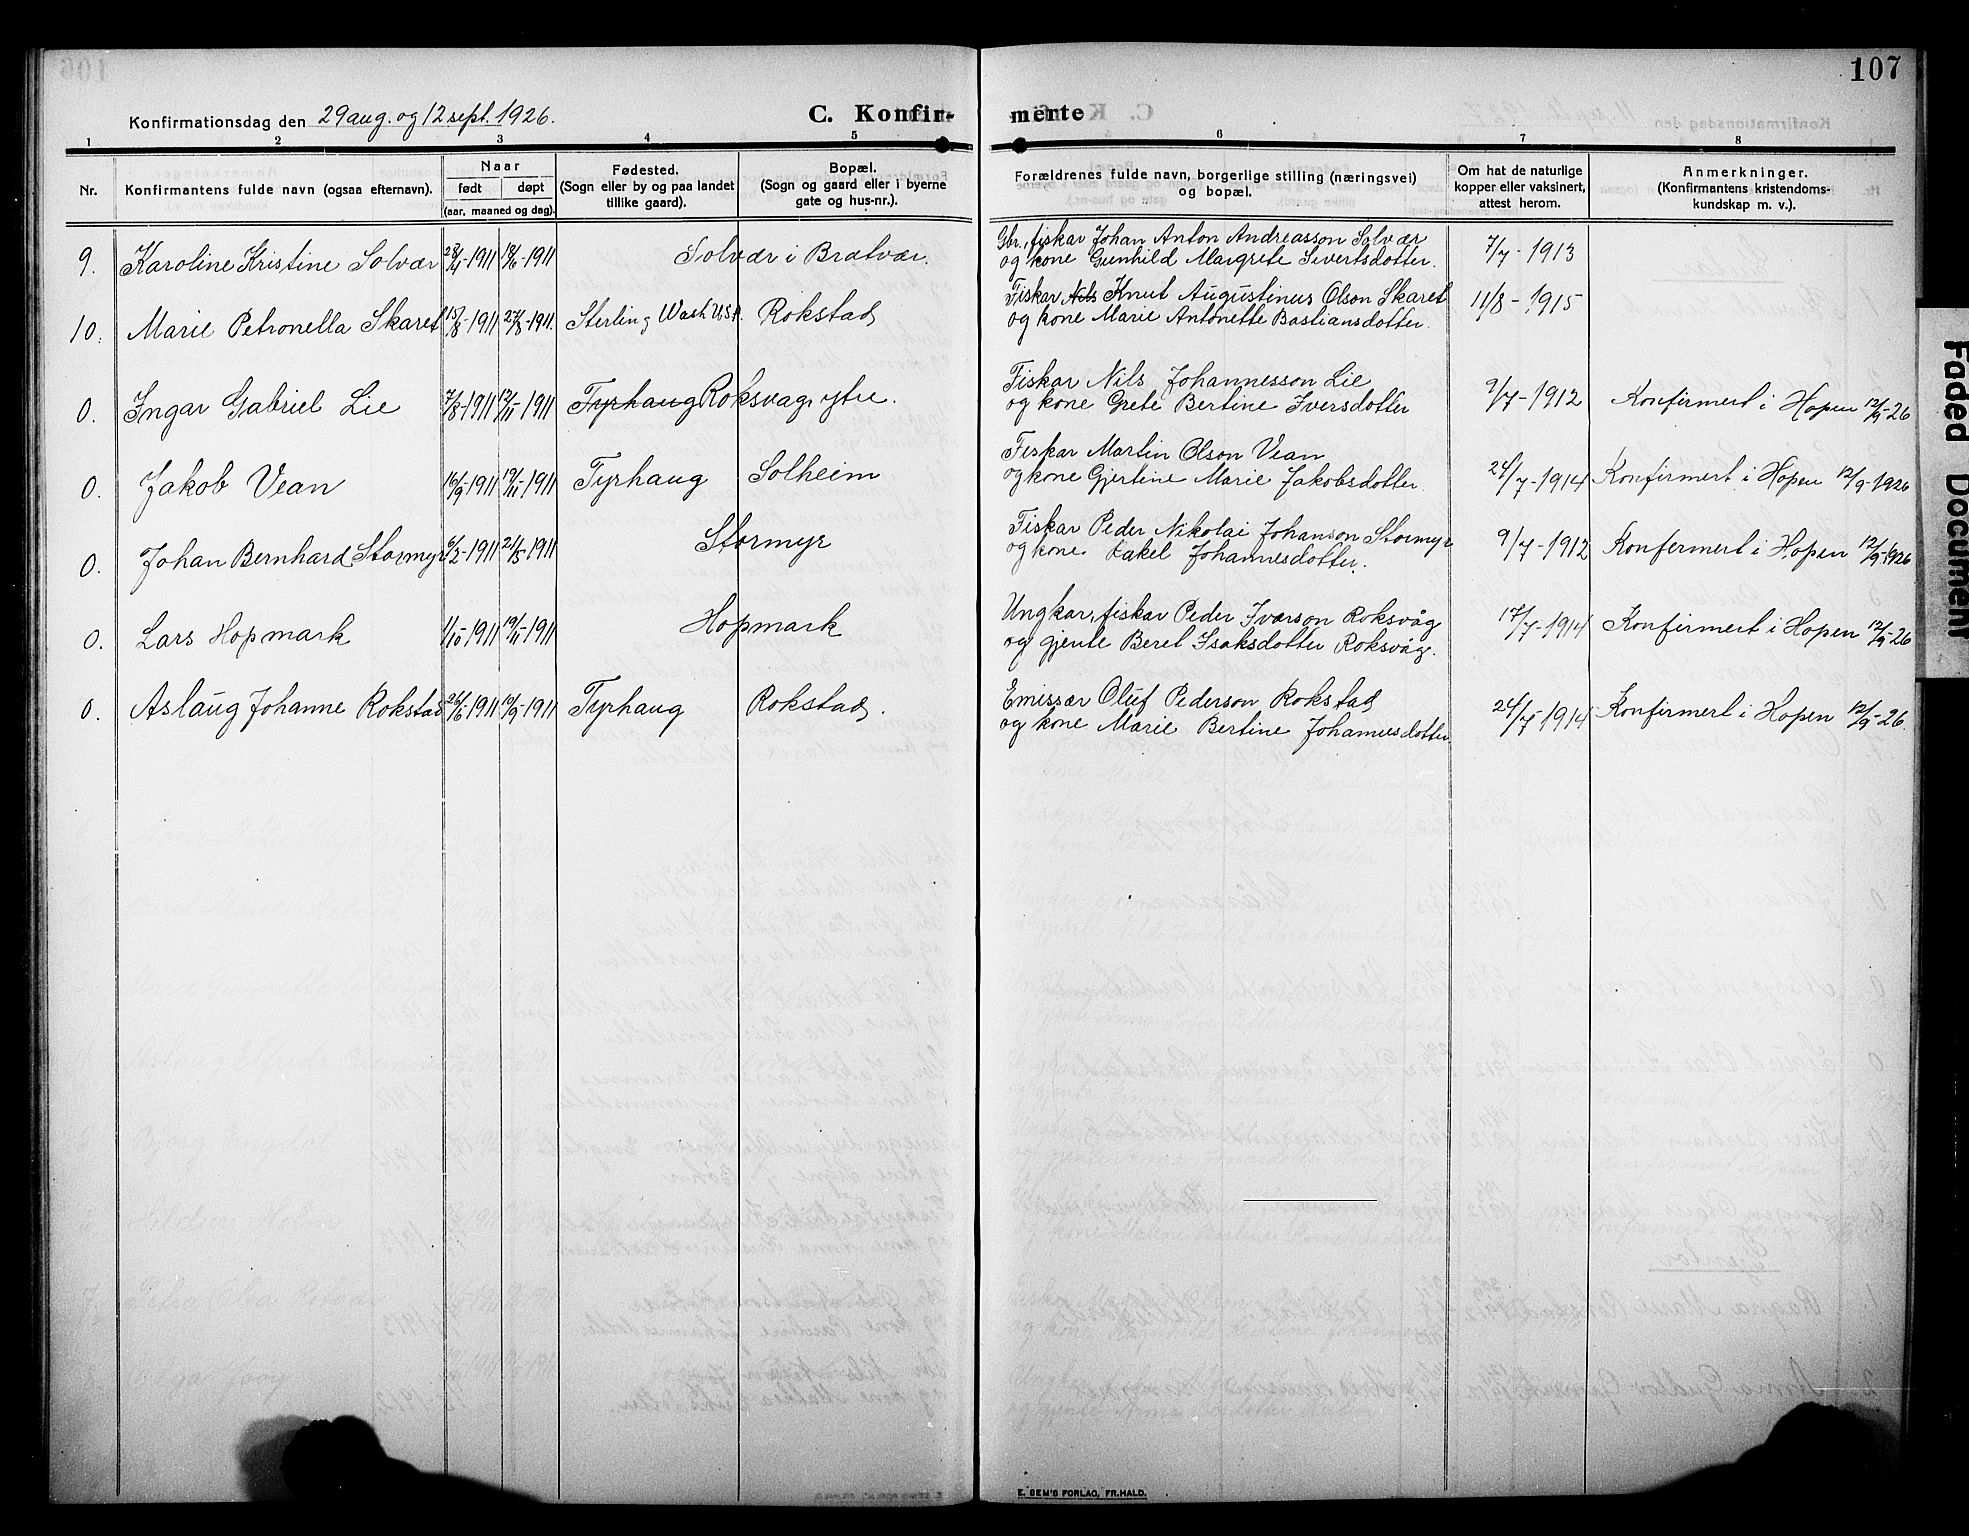 107
Konfirmationsdag den 29 aug. og 12 sept. 1926.
C. Konfir- merte
1 2 3 4 5 6 7 8
Nr.
Konfirmantens fulde navn (ogsaa efternavn).
Naar
født døpt
(aar, maaned og dag).
Fødested.
(Sogn eller by og paa landet
tillike gaard).
Bopæl.
(Sogn og gaard eller i byerne
gate og hus-nr.).
Forældrenes fulde navn, borgerlige stilling (næringsvei)
og bopæl.
Om hat de naturlige
kopper eller vaksinert,
attest herom.
Anmerkninger.
(Konfirmantens kristendoms-
kundskap m. v.).
9. Karoline Kristine Solvær 28/4-1911 18/6-1911 Solvær i Bratvær.
Gbr., fiskar Johan Anton Andreasson Solvær
og kone Gunhild Margrete Sivertsdotter.
7/7-1913
10. Marie Petronella Skaret 15/8-1911 27/8-1911. Sterling Wash U.S.A. Rokstad
Fiskar Nils Knut Augustinus Olson Skaret
og kone Marie Antonette Bastiansdotter.
11/8-1915
0. Ingar Gabriel Lie 7/8-1911 12/11-1911 Tyrhaug Roksvag ytre.
Fiskar Nils Johannesson Lie
og kone Grete Bertine Iversdotter
9/7-1912 Konfirmert i Hopen 12/9-26
0. Jakob Vean 16/9-1911 19/11-1911 Tyrhaug Solheim
Fiskar Martin Olson Vean
og kone Gjertine Marie Jakobsdotter
24/7-1914 Konfirmert i Hopen 12/9-1926
0. Johan Bernhard Stormyr 6/2-1911 21/5-1911 Stormyr
Fiskar Peder Nikolai Johanson Stormyr
og kone Rakel Johannesdotter.
9/7-1912 Konfermert i Hopen 12/9-1926
0. Lars Hopmark 1/10-1911 19/11-1911 Hopmark
Ungkar, fiskar Peder Ivarson Roksvåg
og gjente Beret Isaksdotter Roksvåg.
17/7-1914 Konfirmert i Hopen 12/9-26
0. Aslaug Johanne Rokstad 26/6-1911 10/9-1911 Tyrhaug Rokstad.
Emissær Oluf Pederson Rokstad
og kone Marie Bertine Johannesdotter
24/7-1914 Konfirmert i Hopen 12/9-26.
E. SEM'S FORLAG, FR.HALD.
Faded Document